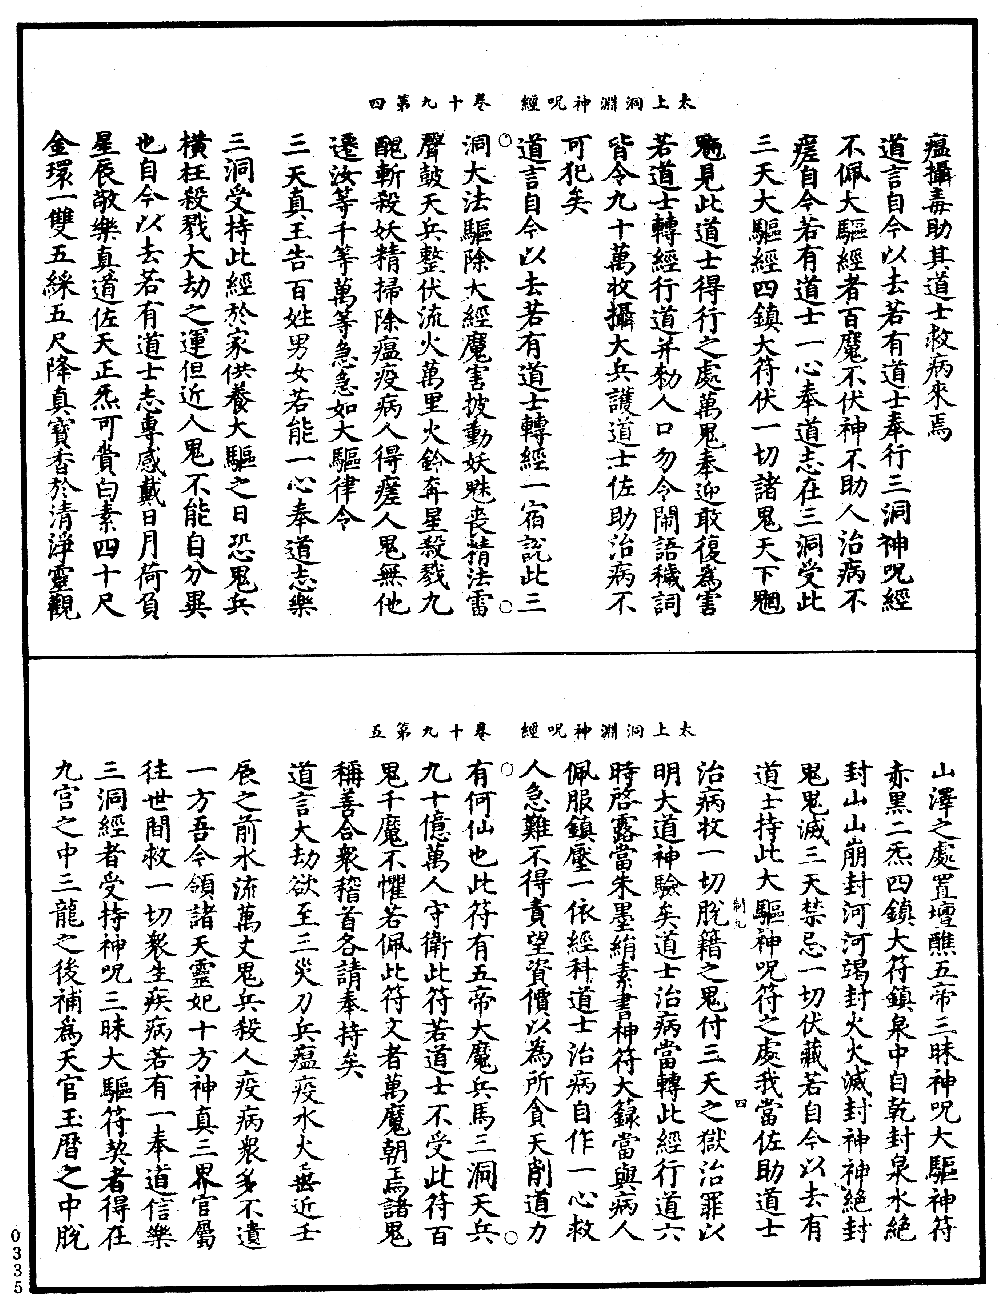 太上洞淵神呪經　卷十九第四
瘟攝毒助其道士救病來焉
道言自今以去若有道士奉行三洞神呪經
不佩大驅經者百魔不伏神不助人治病不
瘥自今若有道士一心奉道志在三洞受此
三天大驅經四鎮大符伏一切諸鬼天下魍
魎見此道士得行之處萬鬼奉迎敢復為害
若道士轉經行道并勑人口勿令鬧語穢詞
皆令九十萬收攝大兵護道士佐助治病不
可犯矣
道言自今以去若有道士轉經一宿說此三
洞大法驅除大經魔害披動妖魅喪精法雷
聲鼓天兵整伏流火萬里火鈴奔星殺戮九
醜斬殺妖精掃除瘟疫病人得瘥人鬼無他
遷汝等千等萬等急急如大驅律令
三天真王告百姓男女若能一心奉道志樂
三洞受持此經於家供養大驅之日恐鬼兵
橫枉殺戮大劫之運但近人鬼不能自分異
也自今以去若有道士志專感戴日月荷負
星辰敬樂真道佐天正炁可賞白素四十尺
金環一雙五綵五尺降真寶香於清淨靈觀
太上洞淵神呪經　卷十九第五
山澤之處置壇醮五帝三昧神呪大驅神符
赤黑二炁四鎮大符鎮泉中自乾封泉水絕
封山山崩封河河竭封火火滅封神神絕封
鬼鬼滅三天禁忌一切伏藏若自今以去有
道士持此大驅神呪符之處我當佐助道士
制九　四
治病收一切脫籍之鬼付三天之獄治罪以
明大道神驗矣道士治病當轉此經行道六
時啓露當朱墨絹素書神符大籙當與病人
佩服鎮壓一依經科道士治病自作一心救
人急難不得責望資價以為所貪天削道力
有何仙也此符有五帝大魔兵馬三洞天兵
九十億萬人守衛此符若道士不受此符百
鬼千魔不懼若佩此符文者萬魔朝焉諸鬼
稱善合衆稽首各請奉持矣
道言大劫欲至三災刀兵瘟疫水火垂近壬
辰之前水流萬丈鬼兵殺人疫病衆多不遺
一方吾今領諸天靈妃十方神真三界官屬
往世間救一切衆生疾病若有一奉道信樂
三洞經者受持神呪三昧大驅符契者得在
九宮之中三龍之後補為天官玉曆之中脫
0335